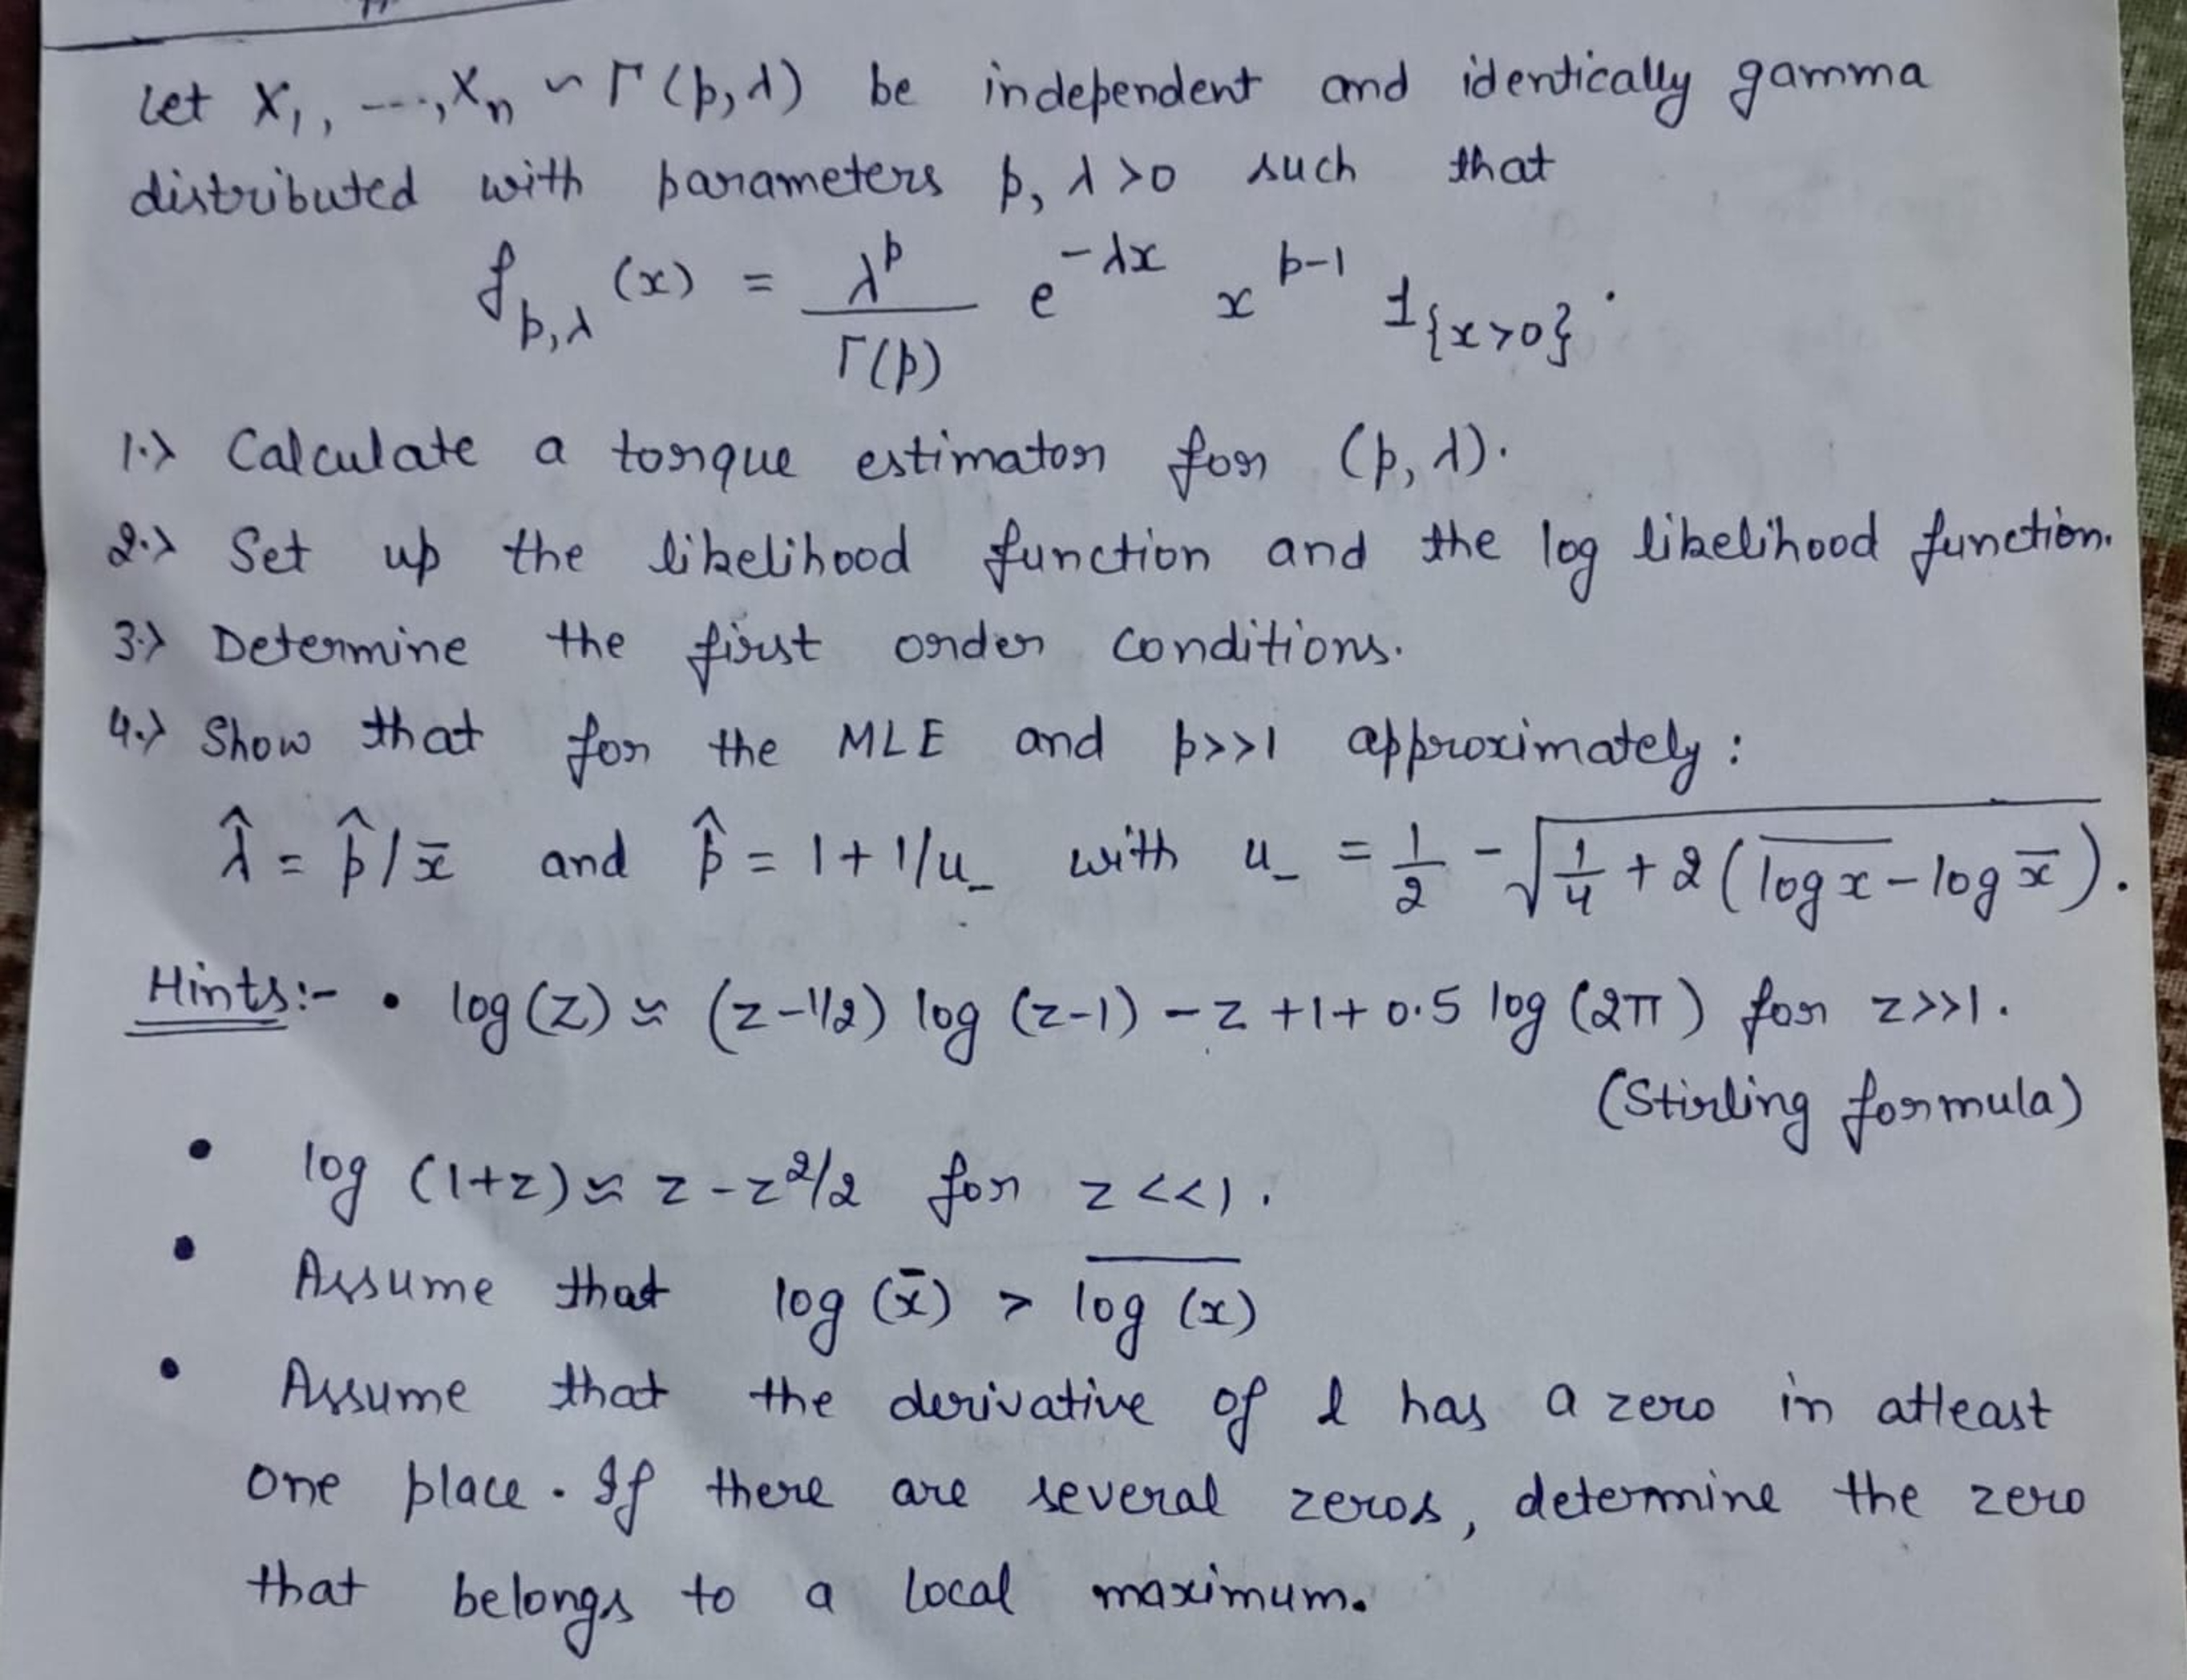 Let X₁, ---, Xₙ ~ Γ(p, λ) be independent and identically gamma
distributed with parameters p, λ > 0 such that
f_{p,λ}(x) = λ^p / Γ(p) e^{-λx} x^{p-1} 1_{\{x>0\}}.
1.> Calculate a torque estimator for (p, λ).
2.> Set up the likelihood function and the log likelihood function.
3.> Determine the first order conditions.
4.> Show that for the MLE and p>>1 approximately:
λ̂ = p̂/x̄ and p̂ = 1 + 1/u₋ with u₋ = 1/2 - √(1/4 + 2(\overline{log x} - log x̄)).
Hints:- • log(z) ≈ (z-1/2) log (z-1) - z + 1 + 0.5 log (2π) for z>>1.
(Stirling formula)
• log (1+z) ≈ z - z²/2 for z <<1.
• Assume that log (x̄) > \overline{log (x)}
• Assume that the derivative of l has a zero in atleast
one place. If there are several zeros, determine the zero
that belongs to a local maximum.